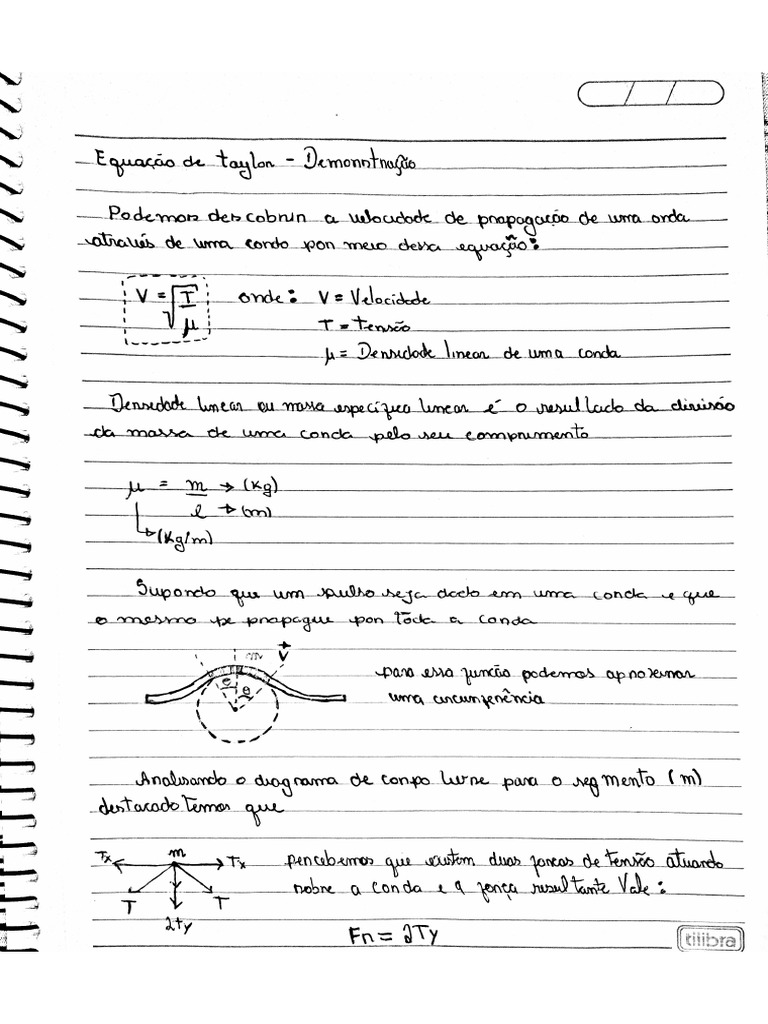 Equação de taylor - Demonstração
Podemos descobrir a velocidade de propagação de uma onda
através de uma corda por meio dessa equação:
V = √T/μ onde: V = Velocidade
T = tensão
μ = Densidade linear de uma corda
Densidade linear ou massa específica linear é o resultado da divisão
da massa de uma corda pelo seu comprimento
μ = m → (Kg)
l → (m)
(Kg/m)
Supondo que um pulso seja dado em uma corda e que
o mesmo se propague por toda a corda
m V
θ θ
para essa função podemos aproximar
uma circunferência
Analisando o diagrama de corpo livre para o segmento (m)
destacado temos que
Tx m Tx percebemos que existem duas forças de tensão atuando
T T sobre a corda e a força resultante Vale:
2ty
Fr = 2Ty
tilibra